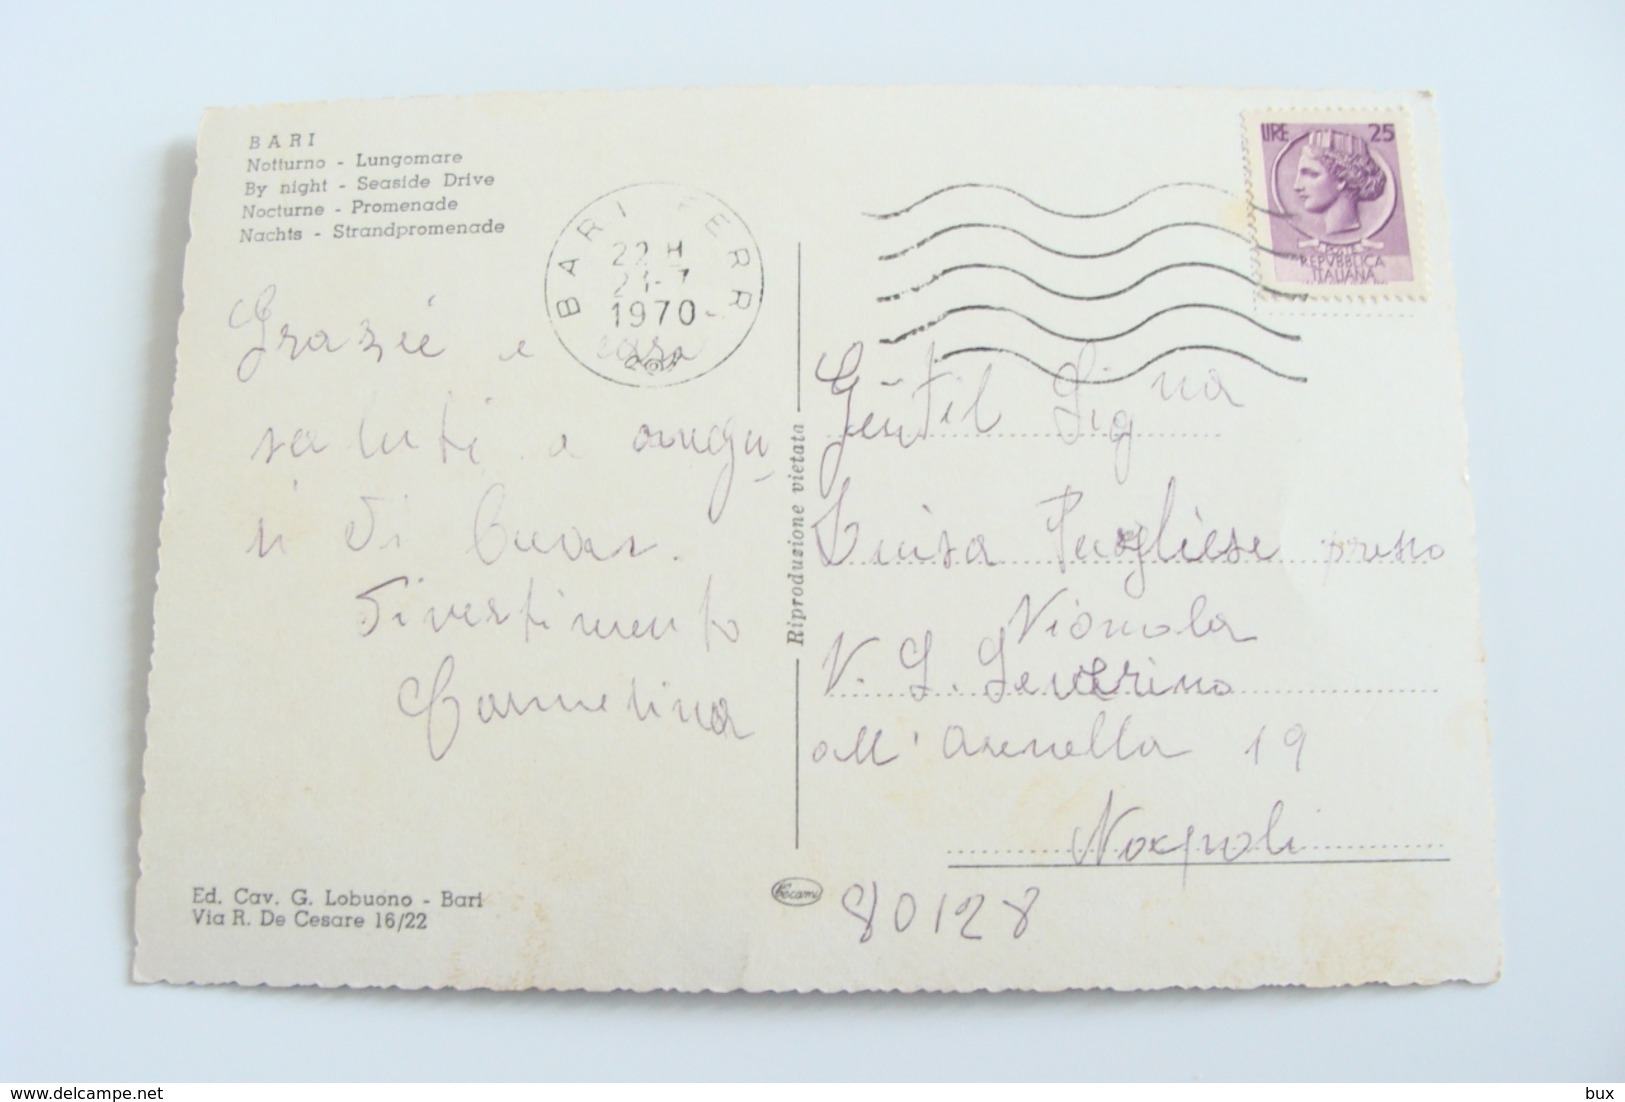 BARI
Notturno - Lungomare
By night - Seaside Drive
Nocturne - Promenade
Nachts - Strandpromenade
BARI FERR
22 H
7
1970
LIRE 25
REPVBBLICA
ITALIANA
Grazie e
saluti e augu
ri di buon
divertimento
Carmelina
Riproduzione vietata
Gentil Sig na
Luisa Pugliese presso
Vignola
V. S. Severino
all' arenella 19
Napoli
80128
Ed. Cav. G. Lobuono - Bari
Via R. De Cesare 16/22
Cecami
delcampe.net
bux